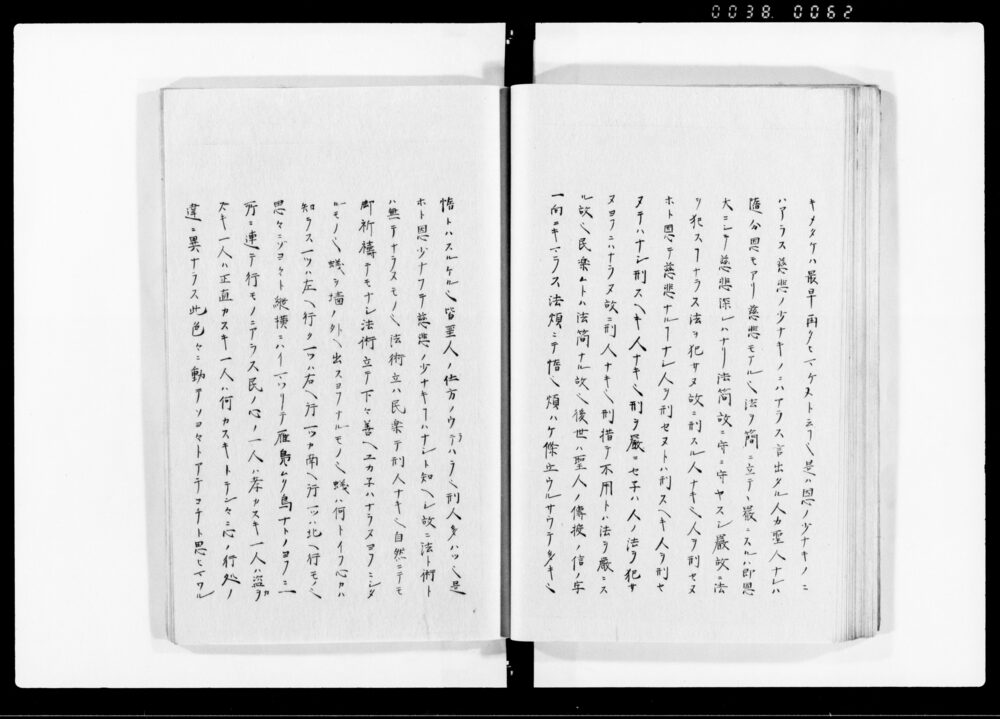 0038 0062
キメタケハ最早再タヒマケヌト云フヿ是ハ恩ノ少ナキノニ
ハアラス慈悲ノ少ナキノニハアラス言出タル人カ聖人ナレハ
随分恩モアリ慈悲モアルヿ法ヲ簡ニ立テヽ厳ニスル即恩
大ニシテ慈悲深シハナリ法簡故ニ守ニ守ヤスシ厳故ニ法
ヲ犯スヿナラス法ヲ犯サヌ故ニ刑スル人ナキヿ人ヲ刑セヌ
ホト恩テ慈悲ナルヿナシ人ヲ刑セヌトハ刑スヘキ人ヲ刑セ
ヌテハナシ刑スヘキ人ナキヿ刑ヲ厳ニセ子ハ人ノ法ヲ犯サ
ヌヨウニハナラヌ故ニ刑人ナキヿ刑措テ不用トハ法ヲ厳ニス
ル故ヿ民楽ムトハ法簡ナル故ヿ後世ハ聖人ノ傳授ノ信ノ字
一向ニキマラス法煩ニテ惰ヿ煩ハケ條立ウルサウテタキヿ
惰トハスルケルヿ皆聖人ノ仕方ノウラテハラヿ刑人多ハツヿ是
ホト恩少ナフテ慈悲ノ少ナキヿハナシト知ヘシ故ニ法ト術ト
ハ無テナラヌモノヿ法術立ハ民楽テ刑人ナキヿ自然ニテモ
御祈禱テモナシ法術立テ下々善ヘユカ子ハナラヌヨウニシタ
ルモノヿ蟻ヲ墻ノ外ヘ出スヨフナルモノヿ蟻ハ何トイフ心カハ
知ラス一ツハ左ヘ行ク一ツハ右ヘ行一ツカ南ヘ行一ツハ北ヘ行モノヿ
思々ニゾヨ々ト縦横ニハイマツリテ雁鳬ムク鳥ナトノヨウニ一
所ニ連テ行モノニテアラス民ノ心ノ一人ハ孝カスキ一人ハ盗カ
スキ一人ハ正直カスキ一人ハ何カスキトテシ々ニ心ノ行処ノ
違ニ異ナラス此色々ニ動テソヨ々トアテコテト思ヒマワル